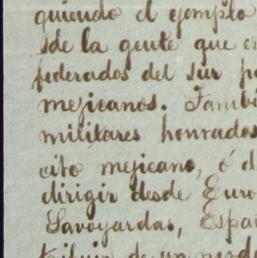 guiendo el ejemplo
de la gente que e
federados del sur p
mejicanos. Tambi
militares honrados
cito mejicano, ó d
dirigir desde Euro
Savoyardas, Espa
tribuir de un mod